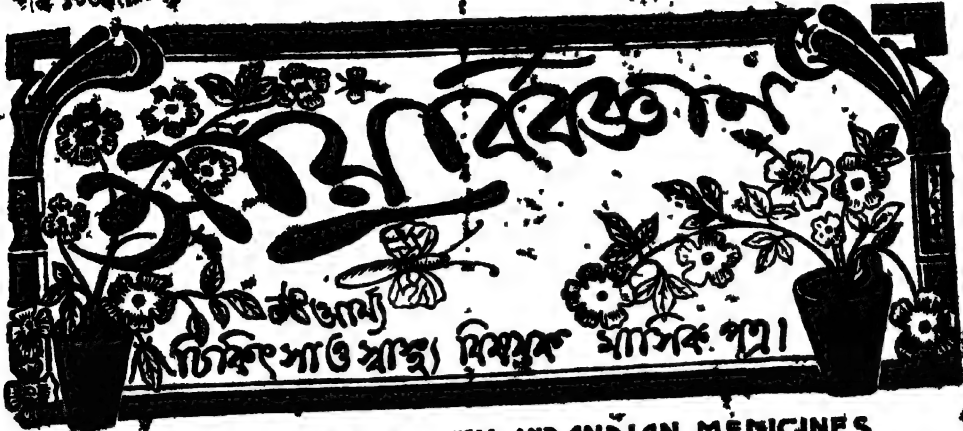 আয়ুর্বিজ্ঞান
আর্য্য
চিকিৎসা ও স্বাস্থ্য বিষয়ক মাসিক পত্র।
AND INDIAN MEDICINES